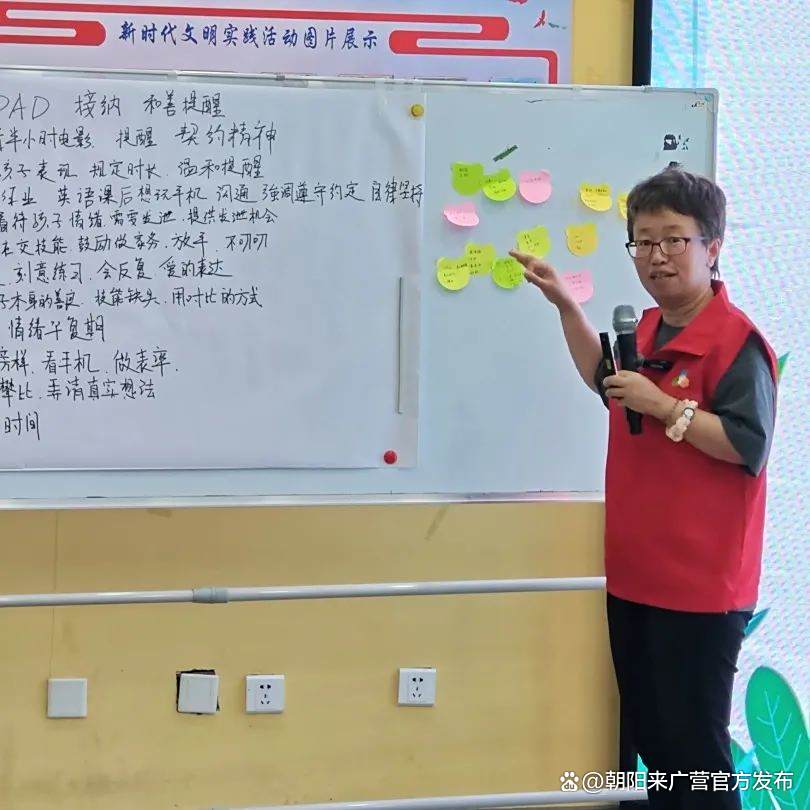 新时代文明实践活动图片展示
PAD 接纳 和善提醒
看半小时电影. 提醒 契约精神
孩子表现. 规定时长. 温和提醒
作业 英语课后想玩手机 沟通 强调遵守约定 自律坚持
看待孩子情绪. 需要发泄. 提供发泄机会
社交技能. 鼓励做家务. 放手. 不叨叨
刻意练习. 会反复. 爱的表达
本身的善良. 技能缺失. 用对比的方式
情绪平复期
榜样. 看手机. 做表率.
攀比. 弄清真实想法
时间
@朝阳来广营官方发布